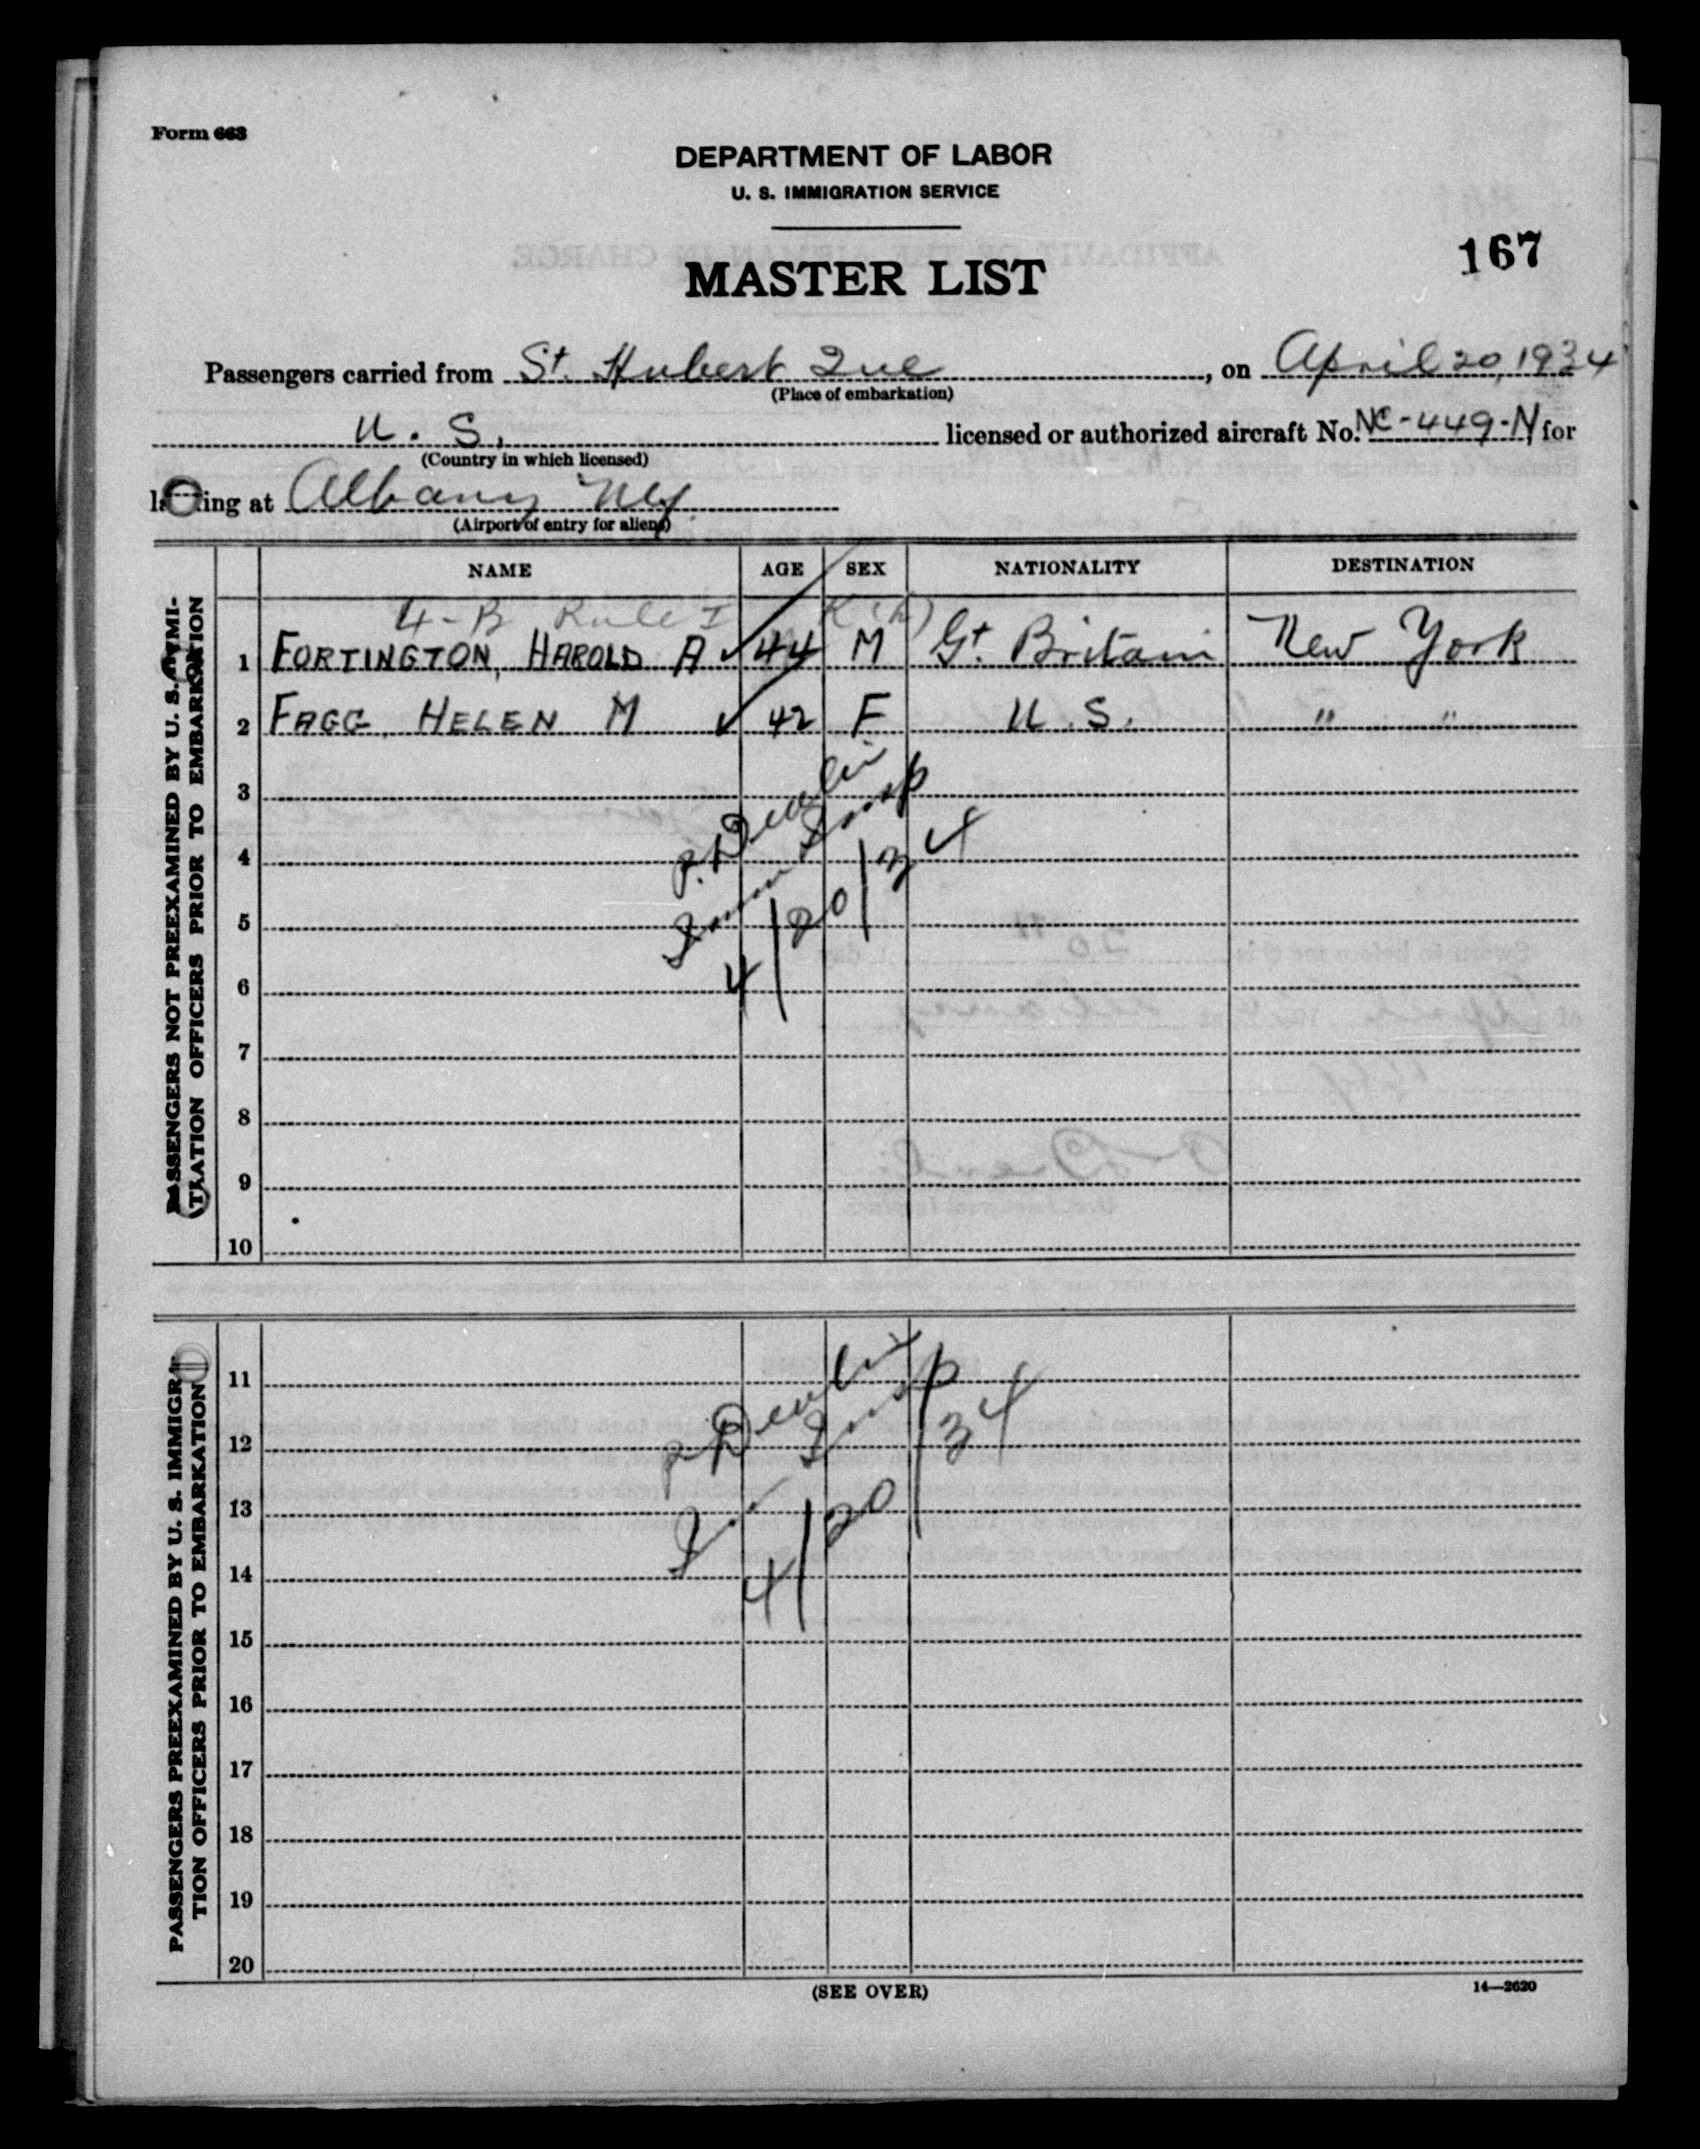 Form 663
DEPARTMENT OF LABOR
U. S. IMMIGRATION SERVICE
167
MASTER LIST
Passengers carried from St. Hubert Que, on April 20, 1934
(Place of embarkation)
U. S. licensed or authorized aircraft No. NC-449-N for
(Country in which licensed)
la ing at Albany NY.
(Airport of entry for aliens)
NAME AGE SEX NATIONALITY DESTINATION
4-B Rule I
1 FORTINGTON, HAROLD A ✓ 44 M Gt. Britain New York
2 FAGG, HELEN M ✓ 42 F U.S. " "
3
4
5
6
7
8
9
10
P. Devlin
Immn Insp
4/20/34
PASSENGERS NOT PREEXAMINED BY U. S. IMMI-
GRATION OFFICERS PRIOR TO EMBARKATION
11
12
13
14
15
16
17
18
19
20
P Devlin
Insp
4/20/34
PASSENGERS PREEXAMINED BY U. S. IMMIGRA-
TION OFFICERS PRIOR TO EMBARKATION
(SEE OVER)
14—2620